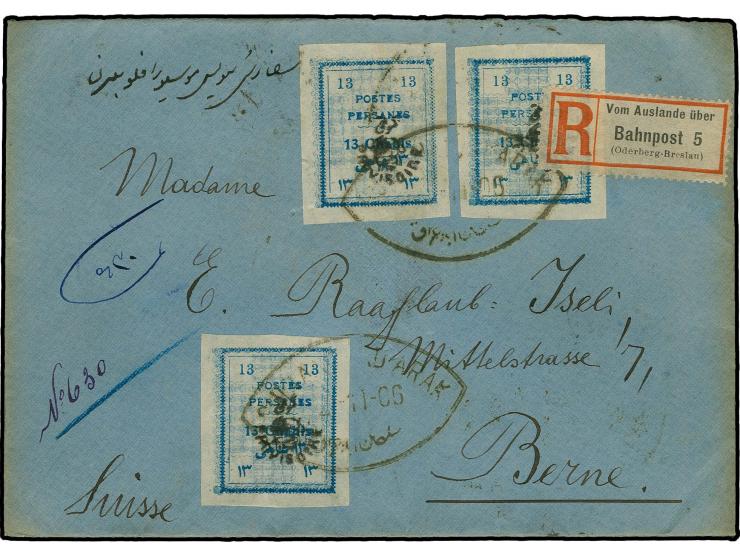 سفارش سویس موسیو رافلوب برن
13 13
POSTES
PERSANES
13 Chahis
PROVISOIRE
١٣ ١٣
13 13
POSTES
١٣
R
Vom Auslande über
Bahnpost 5
(Oderberg-Breslau)
Madame
E. Raaflaub-Iseli,
Mittelstrasse 7,
Nº 630
13 13
POSTES
PERSANES
13 Chahis
PROVISOIRE
١٣ ١٣
11-06
Berne.
Suisse